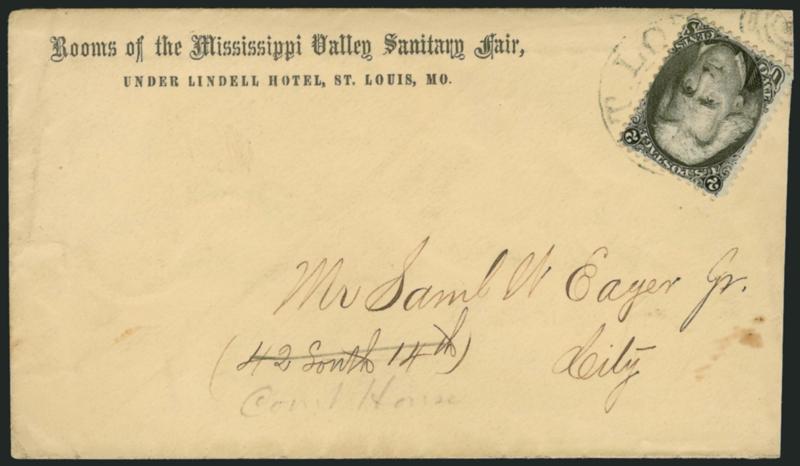 Rooms of the Mississippi Valley Sanitary Fair,
UNDER LINDELL HOTEL, ST. LOUIS, MO.
T LO
U.S. POSTAGE
2 2
Mr Saml W Eager Jr.
(42 South 14th) City
Court House